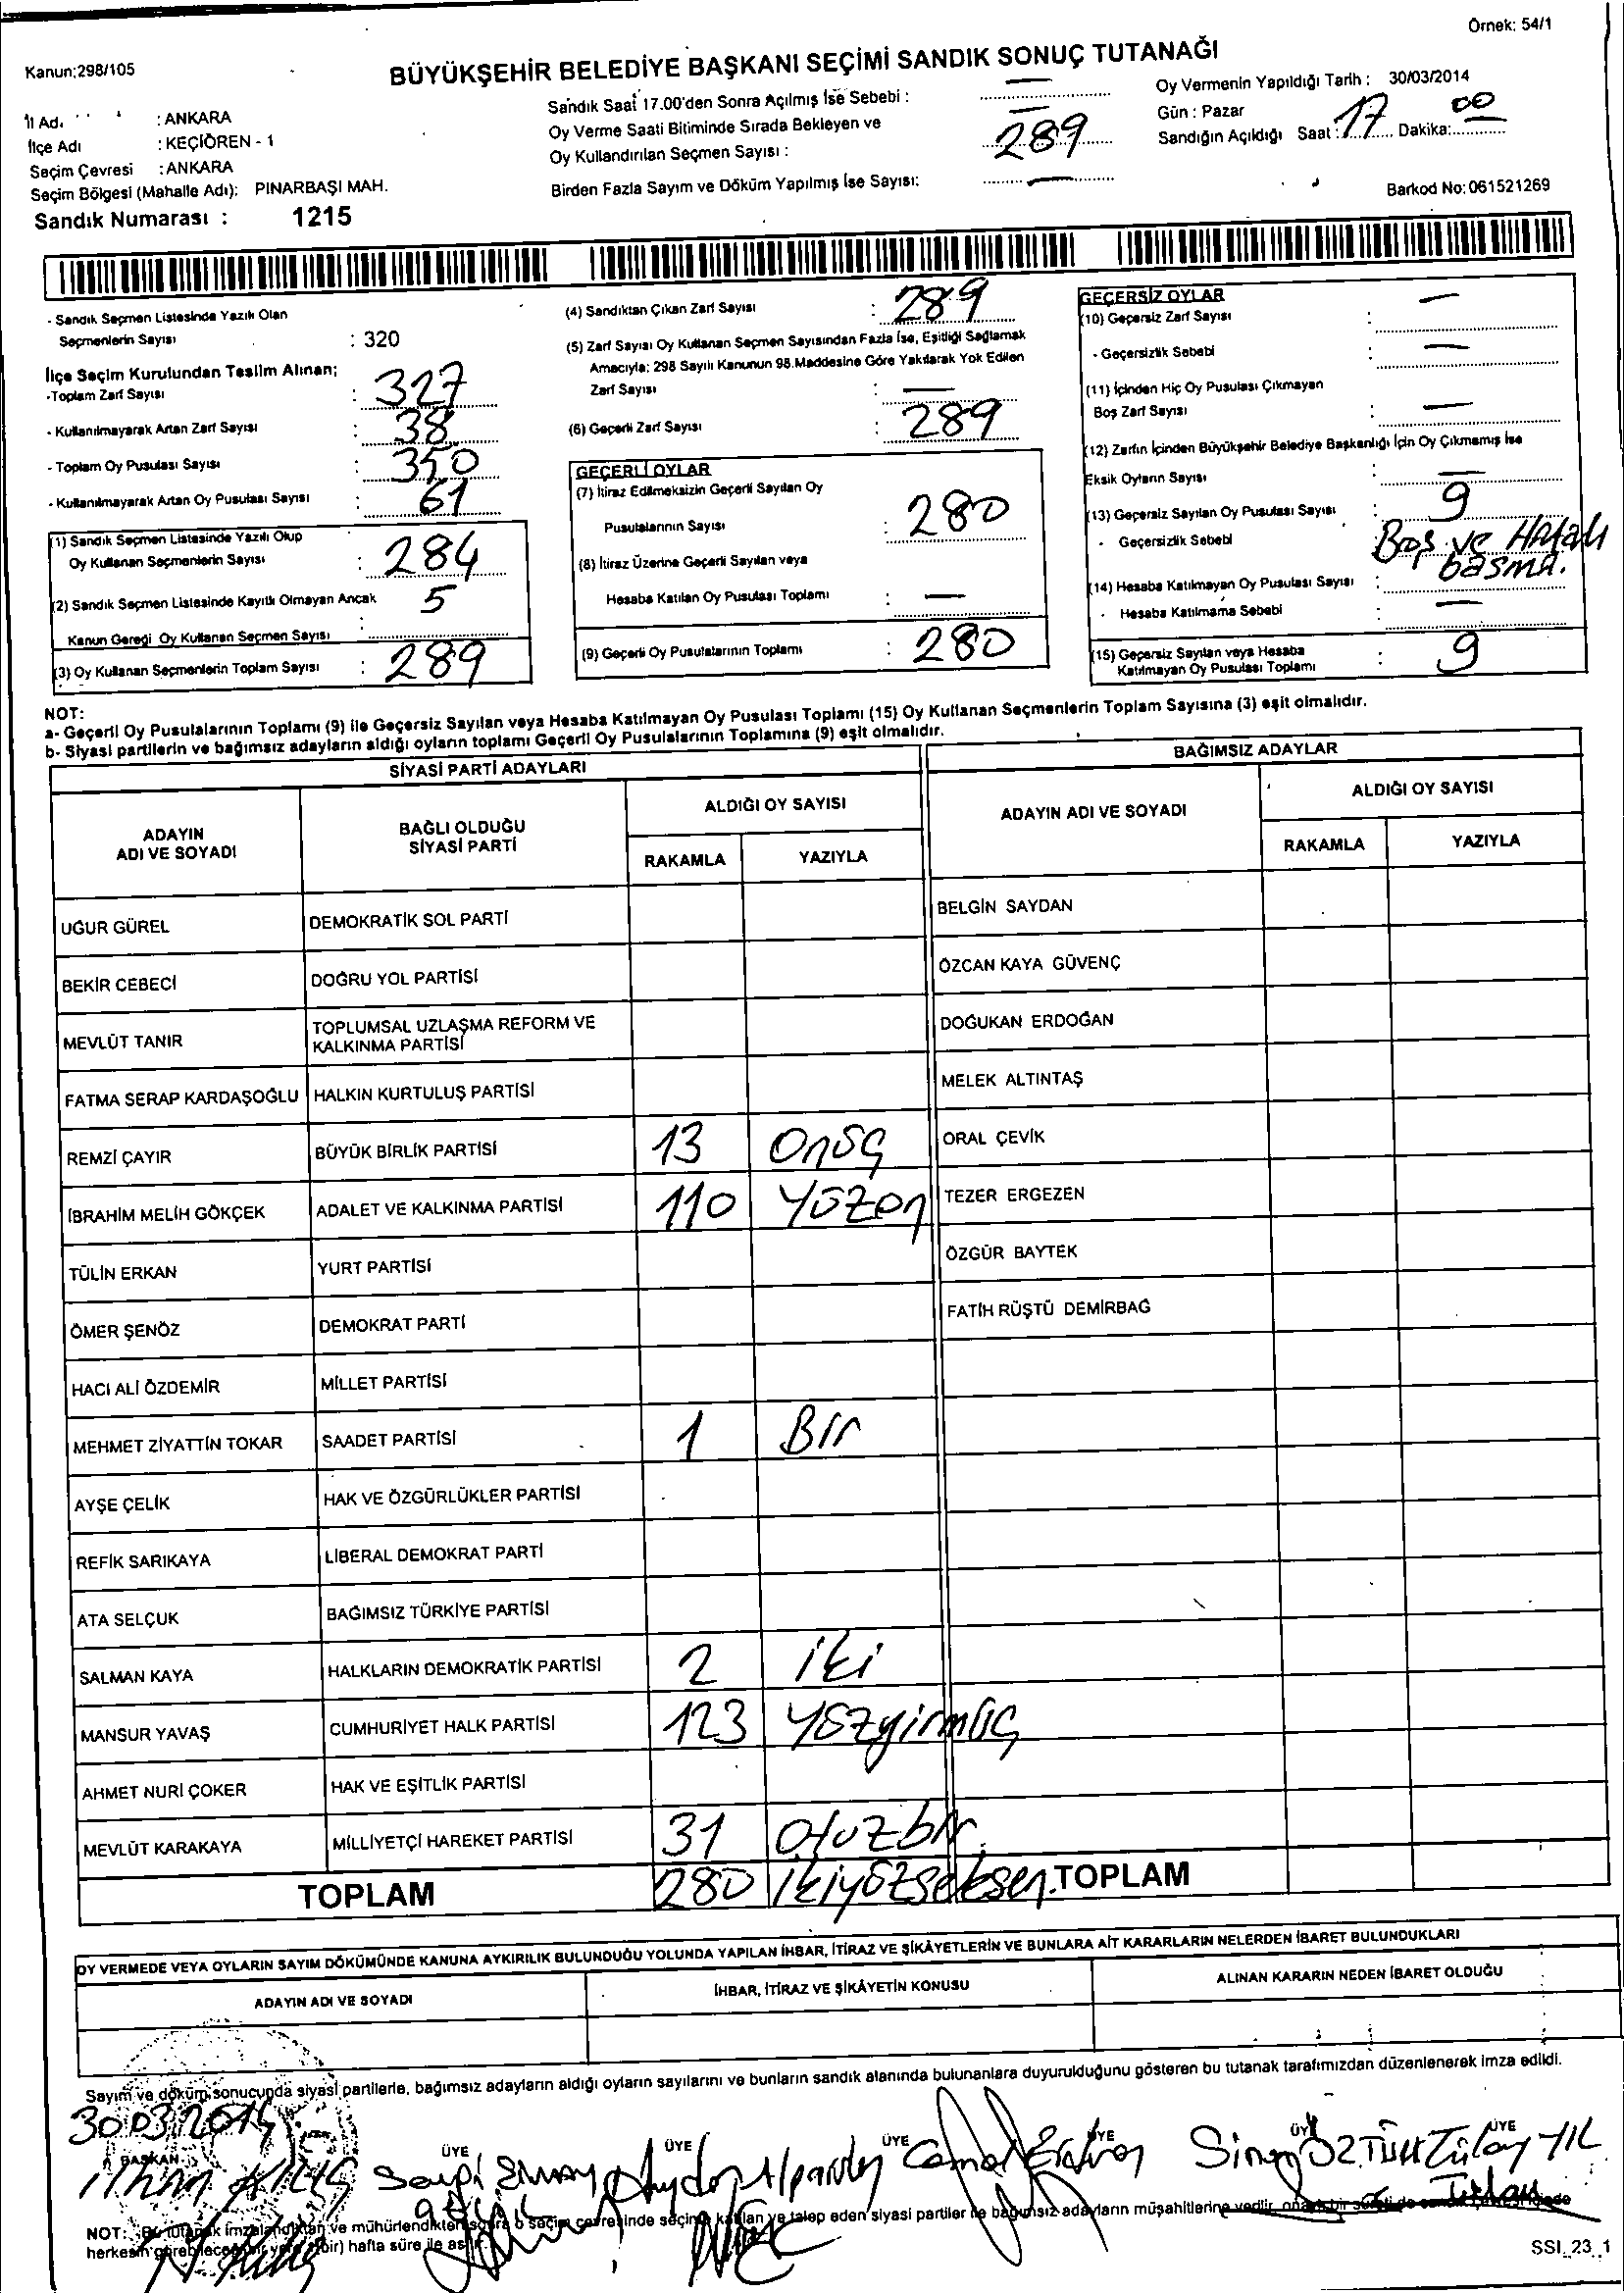 Örnek: 54/1
Kanun:298/105
BÜYÜKŞEHİR BELEDİYE BAŞKANI SEÇİMİ SANDIK SONUÇ TUTANAĞI
İl Adı : ANKARA
İlçe Adı : KEÇİÖREN - 1
Seçim Çevresi : ANKARA
Seçim Bölgesi (Mahalle Adı): PINARBAŞI MAH.
Sandık Numarası : 1215
Sandık Saat 17.00'den Sonra Açılmış İse Sebebi : —
Oy Verme Saati Bitiminde Sırada Bekleyen ve
Oy Kullandırılan Seçmen Sayısı : 289
Birden Fazla Sayım ve Döküm Yapılmış İse Sayısı: —
Oy Vermenin Yapıldığı Tarih : 30/03/2014
Gün : Pazar
Sandığın Açıldığı Saat : 17 Dakika: 00
Barkod No: 061521269
- Sandık Seçmen Listesinde Yazılı Olan
Seçmenlerin Sayısı : 320
İlçe Seçim Kurulundan Teslim Alınan;
-Toplam Zarf Sayısı : 327
- Kullanılmayarak Artan Zarf Sayısı : 38
- Toplam Oy Pusulası Sayısı : 350
- Kullanılmayarak Artan Oy Pusulası Sayısı : 61
(1) Sandık Seçmen Listesinde Yazılı Olup
Oy Kullanan Seçmenlerin Sayısı : 284
(2) Sandık Seçmen Listesinde Kayıtlı Olmayan Ancak
Kanun Gereği Oy Kullanan Seçmen Sayısı : 5
(3) Oy Kullanan Seçmenlerin Toplam Sayısı : 289
(4) Sandıktan Çıkan Zarf Sayısı : 289
(5) Zarf Sayısı Oy Kullanan Seçmen Sayısından Fazla İse, Eşitliği Sağlamak
Amacıyla; 298 Sayılı Kanunun 98.Maddesine Göre Yakılarak Yok Edilen
Zarf Sayısı : —
(6) Geçerli Zarf Sayısı : 289
GEÇERLİ OYLAR
(7) İtiraz Edilmeksizin Geçerli Sayılan Oy
Pusulalarının Sayısı : 280
(8) İtiraz Üzerine Geçerli Sayılan veya
Hesaba Katılan Oy Pusulası Toplamı : —
(9) Geçerli Oy Pusulalarının Toplamı : 280
GEÇERSİZ OYLAR
(10) Geçersiz Zarf Sayısı : —
- Geçersizlik Sebebi : —
(11) İçinden Hiç Oy Pusulası Çıkmayan
Boş Zarf Sayısı : —
(12) Zarfın İçinden Büyükşehir Belediye Başkanlığı İçin Oy Çıkmamış İse
Eksik Oyların Sayısı : —
(13) Geçersiz Sayılan Oy Pusulası Sayısı : 9
- Geçersizlik Sebebi Boş ve Hatalı
basma.
(14) Hesaba Katılmayan Oy Pusulası Sayısı :
- Hesaba Katılmama Sebebi : —
(15) Geçersiz Sayılan veya Hesaba
Katılmayan Oy Pusulası Toplamı : 9
NOT:
a- Geçerli Oy Pusulalarının Toplamı (9) ile Geçersiz Sayılan veya Hesaba Katılmayan Oy Pusulası Toplamı (15) Oy Kullanan Seçmenlerin Toplam Sayısına (3) eşit olmalıdır.
b- Siyasi partilerin ve bağımsız adayların aldığı oyların toplamı Geçerli Oy Pusulalarının Toplamına (9) eşit olmalıdır.
SİYASİ PARTİ ADAYLARI
ADAYIN ADI VE SOYADI
BAĞLI OLDUĞU SİYASİ PARTİ
ALDIĞI OY SAYISI
RAKAMLA YAZIYLA
UĞUR GÜREL DEMOKRATİK SOL PARTİ
BEKİR CEBECİ DOĞRU YOL PARTİSİ
MEVLÜT TANIR TOPLUMSAL UZLAŞMA REFORM VE KALKINMA PARTİSİ
FATMA SERAP KARDAŞOĞLU HALKIN KURTULUŞ PARTİSİ
REMZİ ÇAYIR BÜYÜK BİRLİK PARTİSİ 13 Onüç
İBRAHİM MELİH GÖKÇEK ADALET VE KALKINMA PARTİSİ 110 Yüzon
TÜLİN ERKAN YURT PARTİSİ
ÖMER ŞENÖZ DEMOKRAT PARTİ
HACI ALİ ÖZDEMİR MİLLET PARTİSİ
MEHMET ZİYATTİN TOKAR SAADET PARTİSİ 1 Bir
AYŞE ÇELİK HAK VE ÖZGÜRLÜKLER PARTİSİ
REFİK SARIKAYA LİBERAL DEMOKRAT PARTİ
ATA SELÇUK BAĞIMSIZ TÜRKİYE PARTİSİ
SALMAN KAYA HALKLARIN DEMOKRATİK PARTİSİ 2 iki
MANSUR YAVAŞ CUMHURİYET HALK PARTİSİ 123 Yüzyirmüç
AHMET NURİ ÇOKER HAK VE EŞİTLİK PARTİSİ
MEVLÜT KARAKAYA MİLLİYETÇİ HAREKET PARTİSİ 31 Otuzbir.
TOPLAM 280 ikiyüzseksen.
BAĞIMSIZ ADAYLAR
ADAYIN ADI VE SOYADI
ALDIĞI OY SAYISI
RAKAMLA YAZIYLA
BELGİN SAYDAN
ÖZCAN KAYA GÜVENÇ
DOĞUKAN ERDOĞAN
MELEK ALTINTAŞ
ORAL ÇEVİK
TEZER ERGEZEN
ÖZGÜR BAYTEK
FATİH RÜŞTÜ DEMİRBAĞ
TOPLAM
OY VERMEDE VEYA OYLARIN SAYIM DÖKÜMÜNDE KANUNA AYKIRILIK BULUNDUĞU YOLUNDA YAPILAN İHBAR, İTİRAZ VE ŞİKÂYETLERİN VE BUNLARA AİT KARARLARIN NELERDEN İBARET BULUNDUKLARI
ADAYIN ADI VE SOYADI
İHBAR, İTİRAZ VE ŞİKÂYETİN KONUSU
ALINAN KARARIN NEDEN İBARET OLDUĞU
Sayım ve döküm sonucunda siyasi partilerle, bağımsız adayların aldığı oyların sayılarını ve bunların sandık alanında bulunanlara duyurulduğunu gösteren bu tutanak tarafımızdan düzenlenerek imza edildi.
30.03.2014
BAŞKAN ÜYE ÜYE ÜYE ÜYE ÜYE ÜYE
ilhan KILIÇ
Sinan ÖZTÜRK
Tülay
NOT: Bu tutanak imzalandıktan ve mühürlendikten sonra o seçim çevresinde seçime katılan ve talep eden siyasi partiler ile bağımsız adayların müşahitlerine verilir, onaylı bir sureti de
herkesin görebileceği bir yere (bir) hafta süre ile asılır.
SSI_23_1